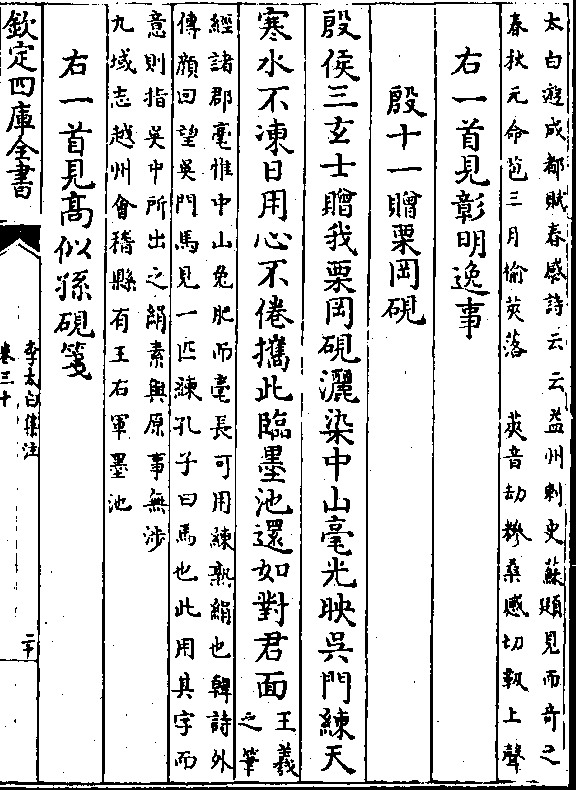 太白遊成都賦春感詩云云益州刺史蘇頲見而奇之
春秋元命苞三月榆莢落　莢音劫糝桑感切靱上聲
右一首見彰明逸事
殷十一贈栗岡硯
殷侯三玄士贈我栗岡硯灑染中山毫光映吳門練天
寒水不凍日用心不倦攜此臨墨池還如對君面
王羲
之筆
經諸郡毫惟中山兔肥而毫長可用練熟絹也韓詩外
傳顔回望吳門馬見一匹練孔子曰馬也此用其字而
意則指吳中所出之絹素與原事無涉
九域志越州會稽縣有王右軍墨池
右一首見高似孫硯箋
欽定四庫全書
李太白集注
卷三十
二十